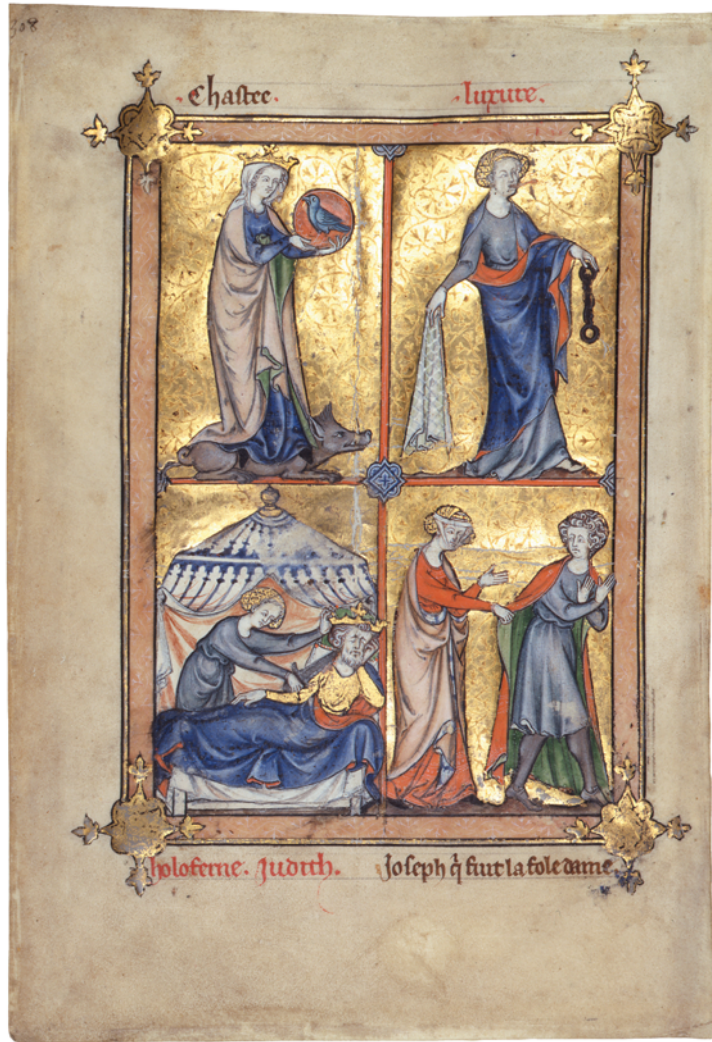 308
Chastee.
luxure.
holoferne. Judith.
Joseph q̃ fuit la fole dame